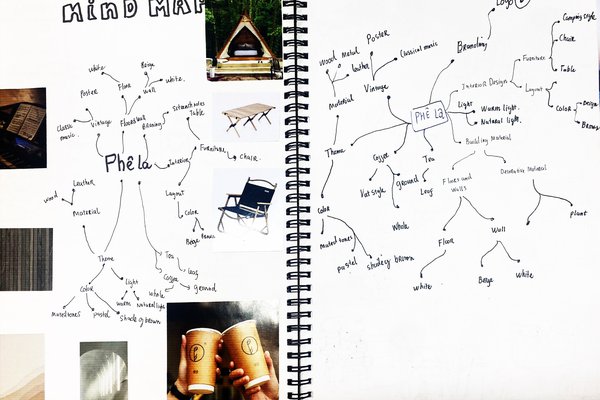 MIND MAP
white
Beige
Poster
Floor
wall
white.
Classic music.
vintage
Floor&Wall
Table
Phê la
interior
Furniture
chair.
Leather
wood
Material
Layout
Color
Beige
Theme
Tea
leaf
Color
light
Coffee
whole
ground
warm
Natural light
Muted tones
pastel
shade of brown
Logo
Camping style
Poster
Branding
Chair
wood
Metal
leather
Classical music
Furniture
Table
Vintage
Interior Design
Layout
Material
Light
Warm light.
Color
Beige
Brown
PHÊ LA
Natural light.
Building Material
Theme
Coffee
Tea
Floors and Walls
Decorating Material
ground
leaf
Whole
Color
plant
Muted tones
Floor
Wall
pastel
shade of brown
white
Beige
white